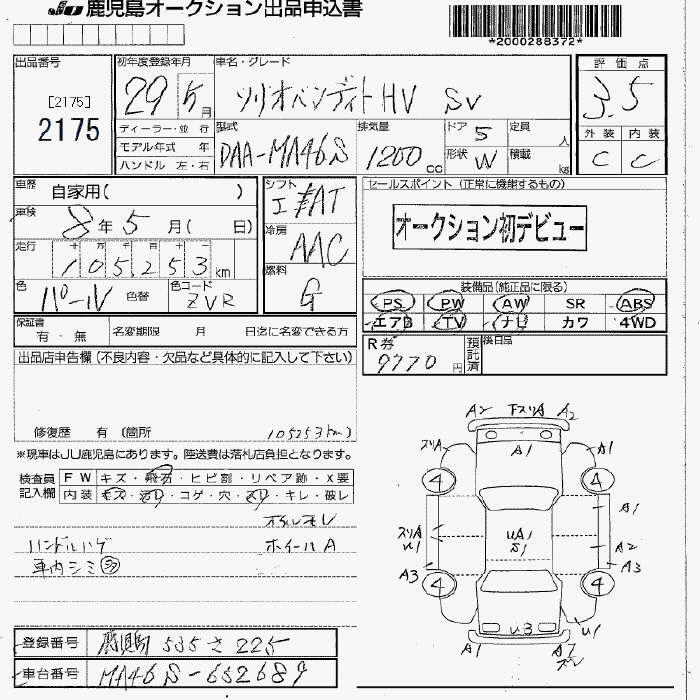 JU 鹿児島オークション出品申込書
*2000288372*
出品番号
[2175]
2175
初年度登録年月
29 5 月
ディーラー・並 行
モデル年式 年
ハンドル 左・右
車名・グレード
ソリオバンディトHV SV
型式
DAA-MA46S
排気量
1200 cc
ドア 5
形状 W
定員 人
積載 kg
評 価 点
3.5
外 装 内 装
C C
車歴 自家用( )
車検 8 年 5 月( 日)
走行 十 万 千 百 十 一
105253 km
色 パール 色替
色コード ZVR
シフト
AT
冷房
AAC
燃料
G
セールスポイント (正常に機能するもの)
オークション初デビュー
装備品(純正品に限る)
PS PW AW SR ABS
エアB TV ナビ カワ 4WD
保証書
有 ・ 無
名変期限 月 日迄に名変できる方
R券
9770 円
預託済
後日品
出品店申告欄(不良内容・欠品など具体的に記入して下さい)
修復歴 有 〔箇所 105253km〕
※現車はJU鹿児島にあります。陸送費は落札店負担となります。
検査員記入欄
FW キズ・飛石・ヒビ割・リペア跡・X要
内装 キズ・汚れ・コゲ・穴・スレ・キレ・破レ
ハンドルハゲ
ホイールA
車内シミ多
登録番号 鹿児島 535 さ 225
車台番号 MA46S-652689
A2 下スリA A2
スリA A1 A1
4 4
A1
スリA
U1
UA1
S1
A2
A3 A3
4 4
U3 U1
A1 A2